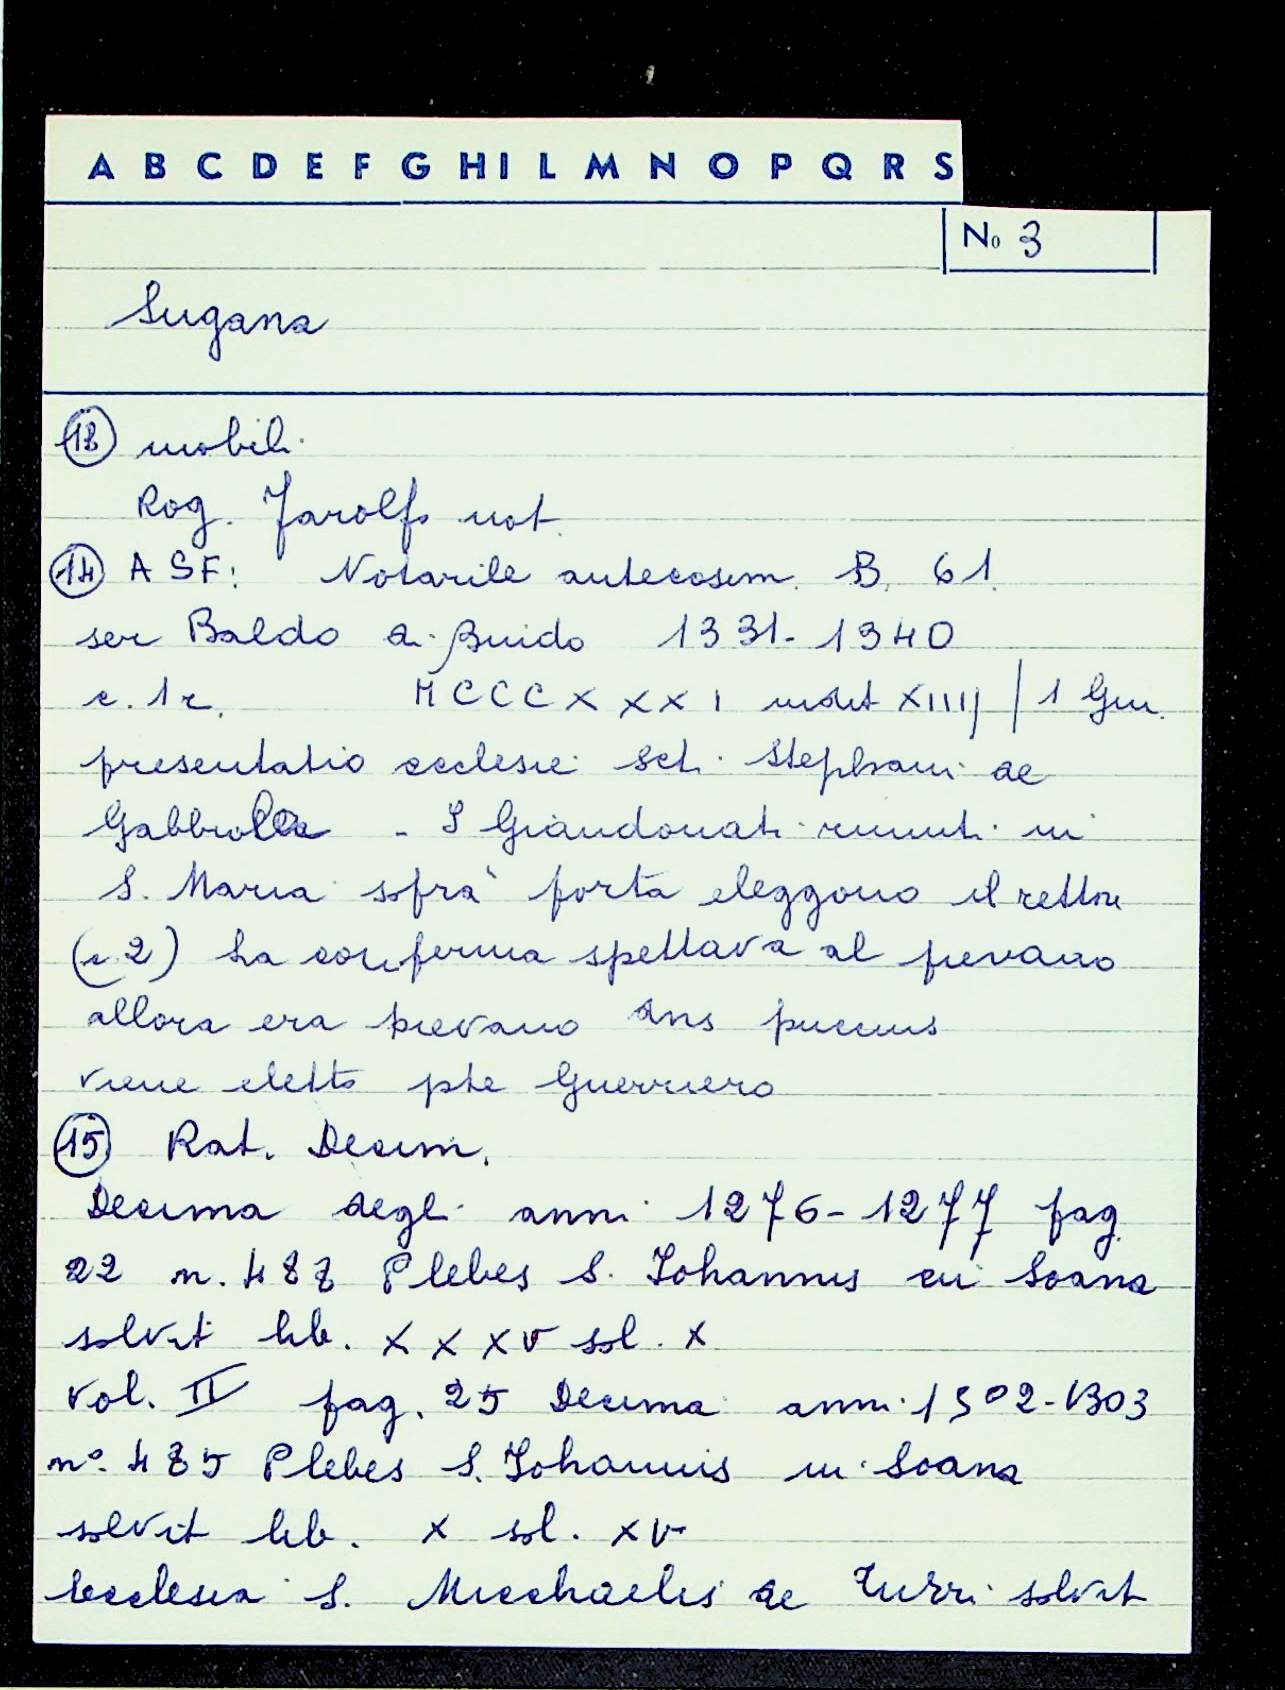 A B C D E F G H I L M N O P Q R S
No 3
Sugana
13 mobili
Rog. Jarolfo not.
14 ASF. Notarile antecosim. B. 61.
ser Baldo di Guido 1331-1340
c. 1r. MCCCXXXI indit XIIII / 1 Giu.
presentatio ecclesie Scti Stephani de
Gabbiola - I Giandonati riuniti in
S. Maria sopra porta eleggono il rettore
(c. 2) La conferma spettava al pievano
allora era pievano dns puccius
viene eletto pte Guerriero
15 Rat. Decim.
Decima degli anni 1276-1277 pag.
22 n. 487 Plebes S. Johannis in Soana
solvit lib. XXXV sol. X
vol. II pag. 25 Decima anni 1302-1303
n°. 485 Plebes S. Johannis in Soana
solvit lib. X sol. XV
Ecclesia S. Micchaelis de Turri solvit